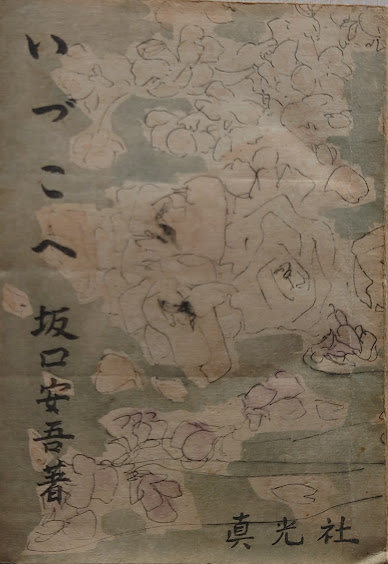 いづこへ
坂口安吾著
眞光社